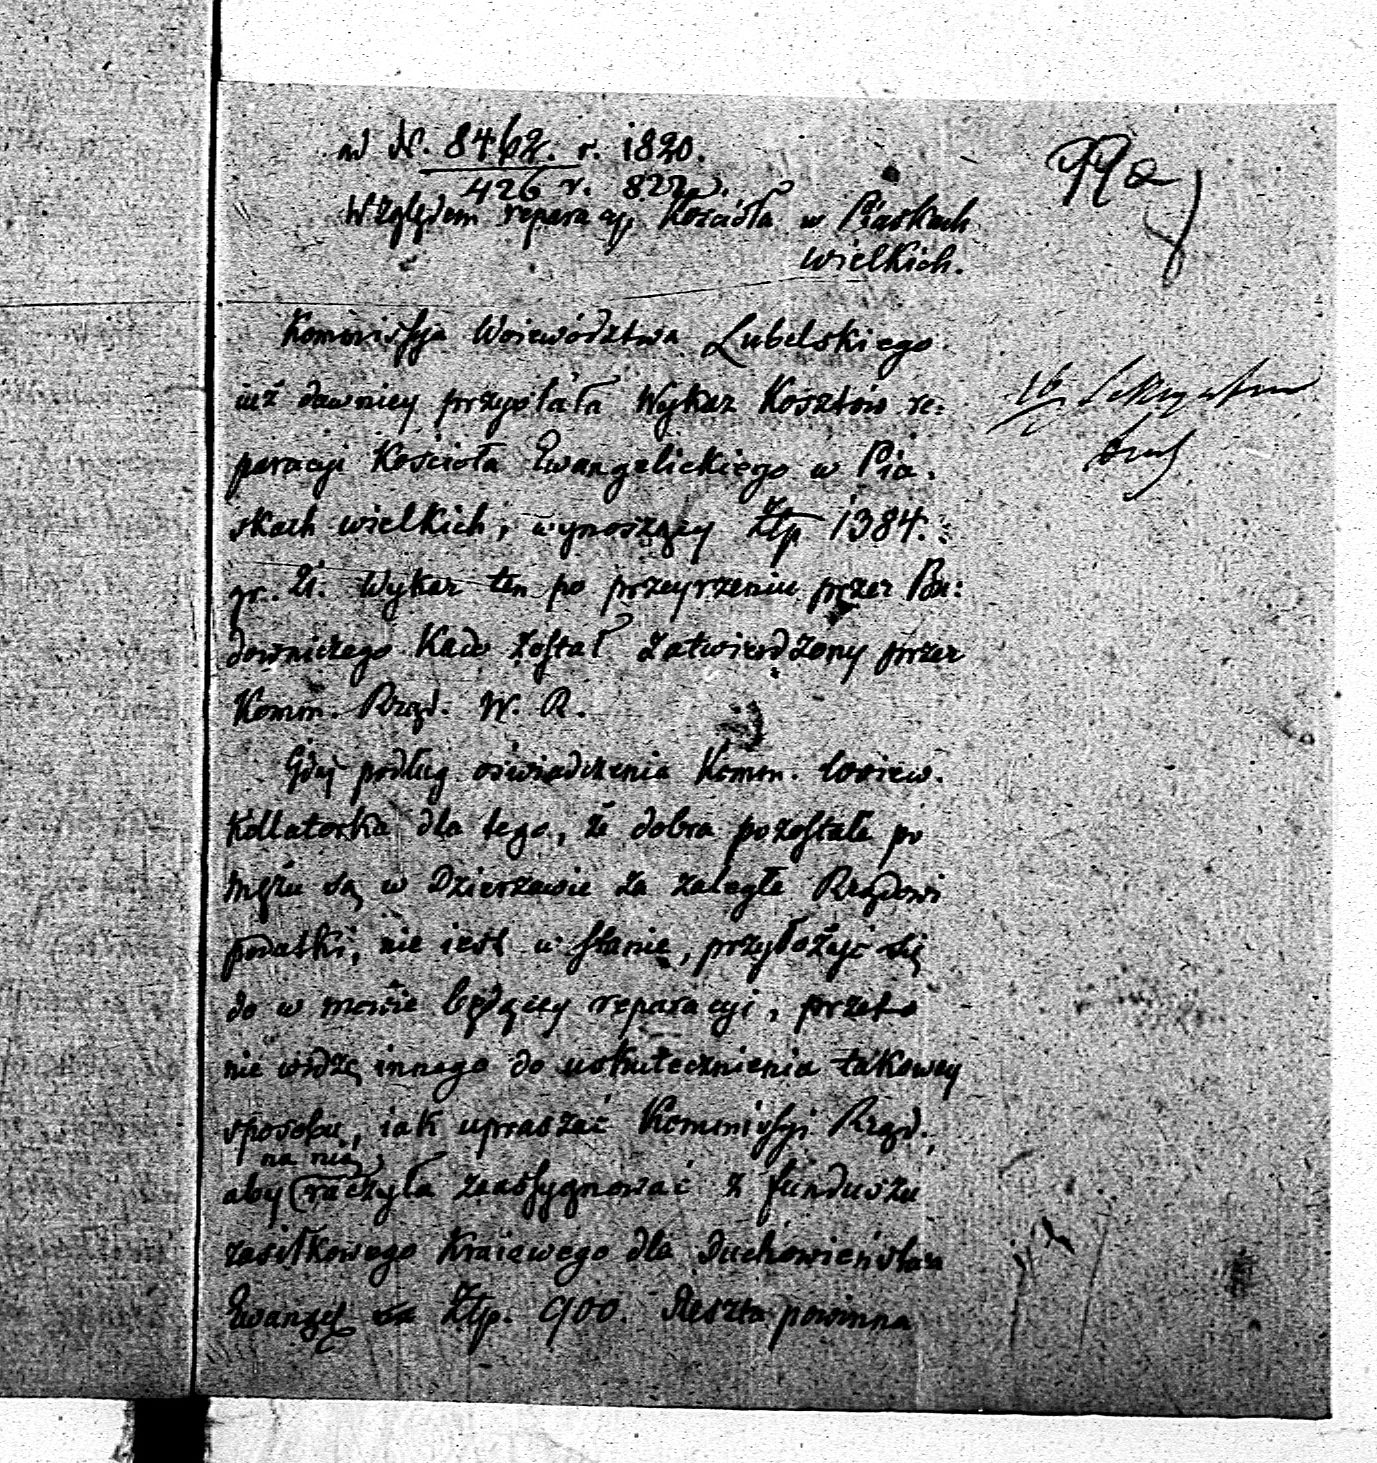 ad N. 8462. r. 1820.
426 r. 822.
Względem reparacyi Kościoła w Piaskach
wielkich.
Kommissyja Woiewództwa Lubelskiego
iuż dawniey przysłała Wykaz Kosztów re:
paracyi Kościoła Ewangelickiego w Pia:
skach wielkich, wynoszący Złp 1384.
gr. 21. Wykaz ten po przeyrzeniu przez Bu:
downiczego został zatwierdzony przez
Komm. Rząd. W. R.
Gdy podług oświadczenia Komm. woiew.
Kollatorka dla tego, że dobra pozostałe po
mężu są w Dzierzawie za zaległe Rządowi
podatki, nie iest w stanie, przyłożyć się
do w mowie będącey reparacyi, przeto
nie widzę innego do uskutecznienia takowey
sposobu, iak upraszać Kommissyi Rząd.,
na nią
aby raczyła zaassygnować z funduszu
zasiłkowego Kraiowego dla Duchowieństwa
Ewangel Złp. 900. Reszta powinna